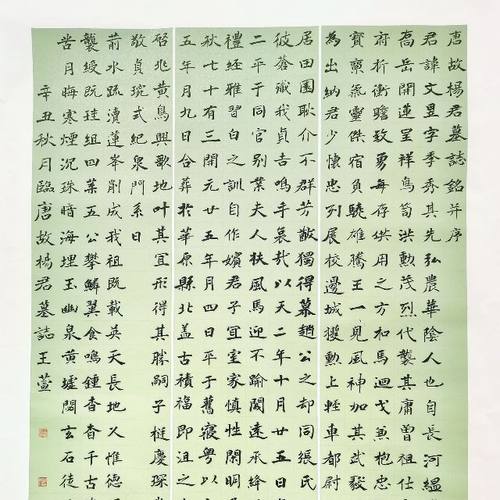 唐故楊君墓誌銘并序
君諱文昱字季秀其先弘農華陰人也自長河縕
高岳開蓮呈祥鳥筍洪勳茂烈代襲其庸曾祖仕
府折衝瞻政勇每存供用之方和馬迴戈兼抱忠
寶粢靈傑宿負驍雄騰王一見風神加其武毅
為出納君少懷忠列展校邊城獲勳上輕車都尉
居田園耿介不群芳散獨得幕趙公之却同張氏
彼蒼殲我貞吉鳴手哀哉以天二年十月廿五日
二平于同官別業夫人扶風馬迎不踰閾遠承絳
禮經雅習白之訓自作嬪君子宜室家慎性閑明
秋七十有三開元廿五年月四日平于舊寢粵以
五年月九日合葬於華原縣北蓋古積福即迢之
啓兆黃鳥興歌地叶其宜形得其勝嗣子梃慶琛
敬貞琬式紀泉門系日
莭水疏瀆蓮峯削成我祖既載英天長地久惟德
襲綬既珪組四葉五公攀鱗翼食鳴鍾杳杳千古
苦月晦寒煙沉珠暗海埋玉幽泉黃壚閟玄石徒
辛丑秋月臨唐故楊君墓誌王萱